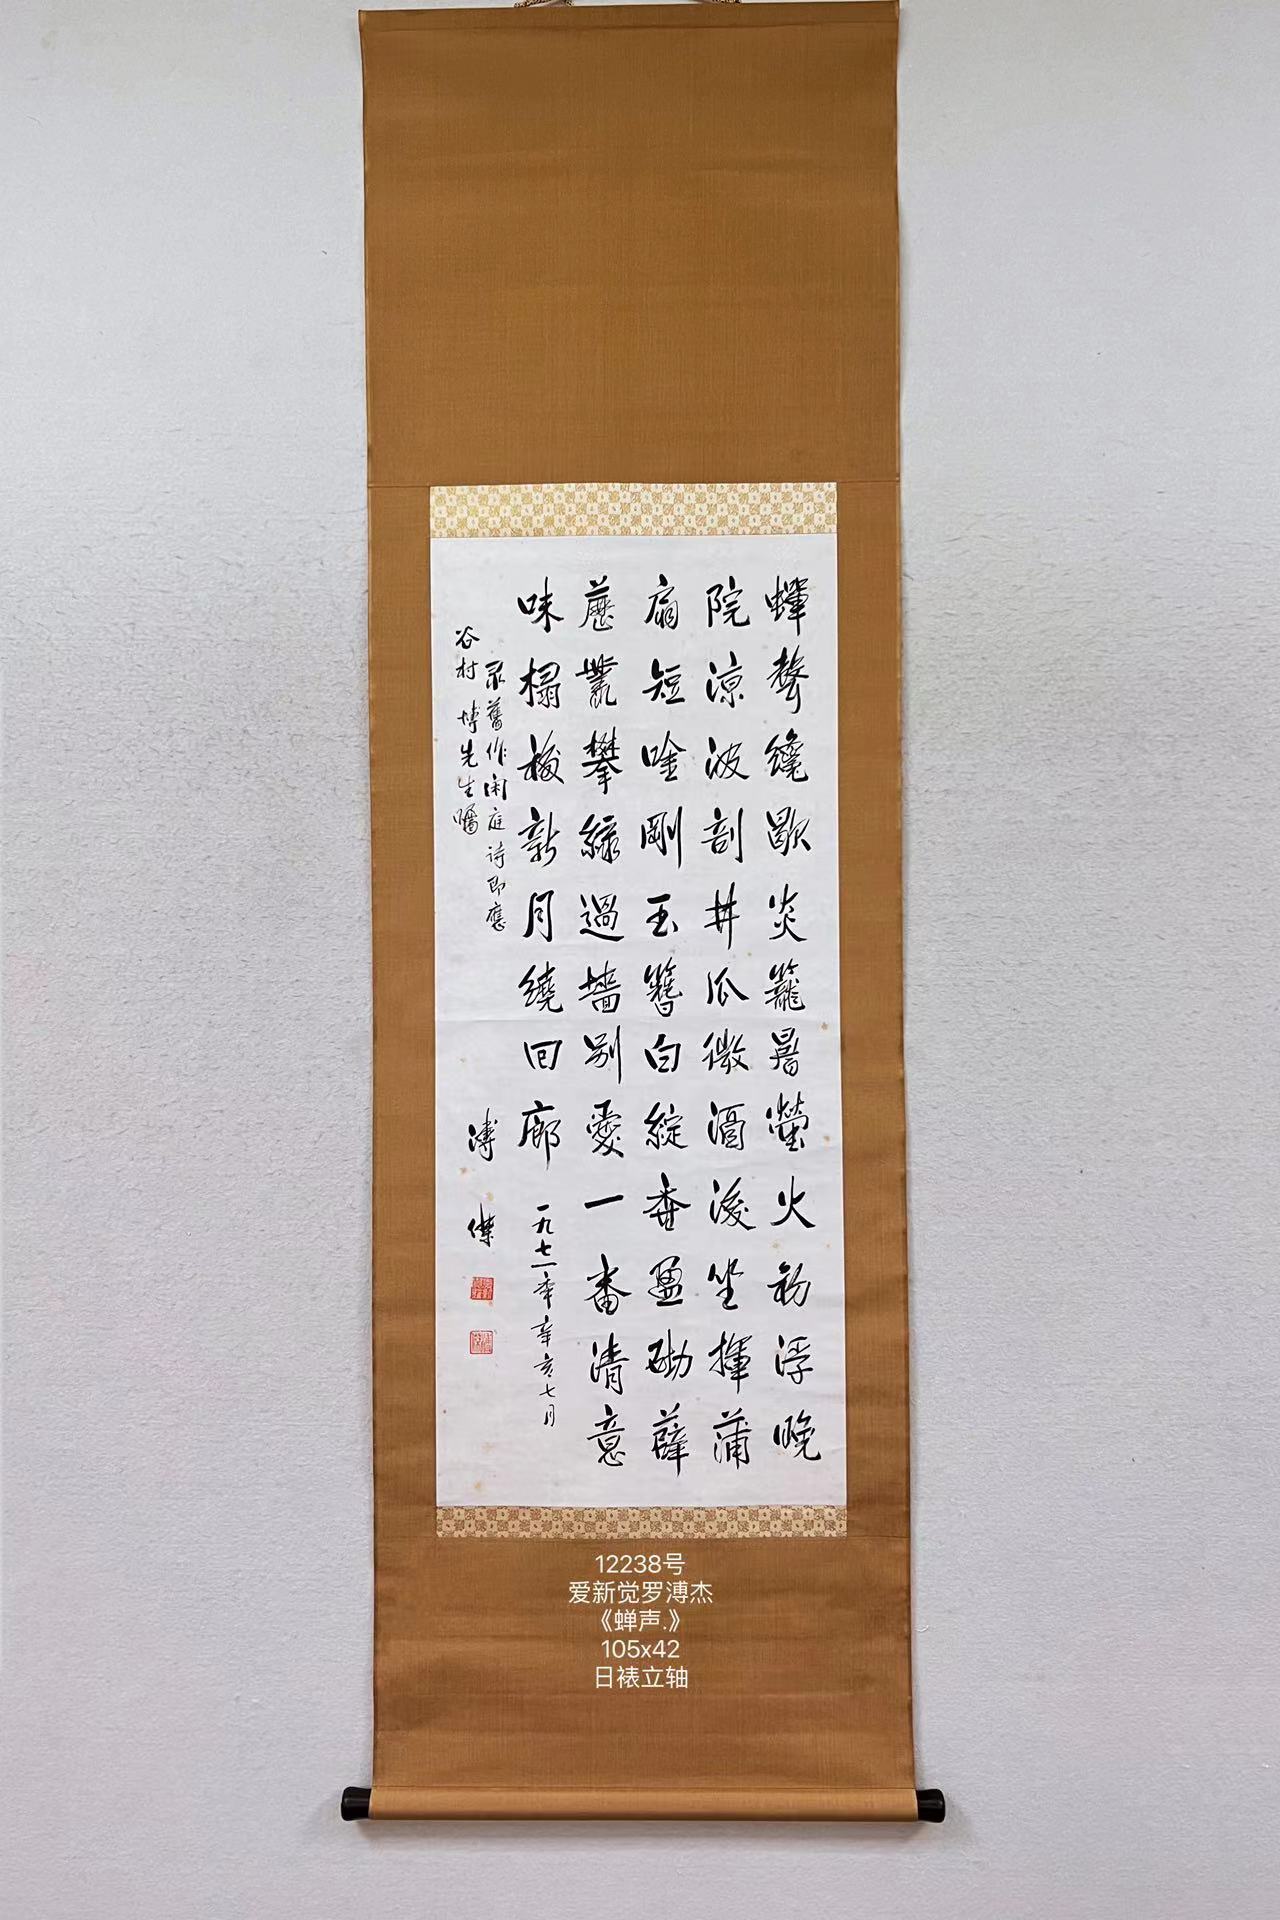 蟬聲纔歇炎籠晷螢火初浮晚
院涼波剖井瓜微酒後坐揮蒲
扇短唫剛玉簪白綻香盈砌薜
蘿叢攀綠過墻別愛一番清意
味榻移新月繞回廊 一九七一年辛亥七月
录舊作閑庭诗即應
谷村博先生囑
溥傑
12238号
爱新觉罗溥杰
《蝉声.》
105x42
日裱立轴